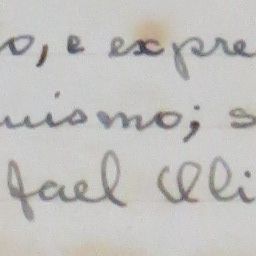 o, e expre
uismo; s
fael Oli